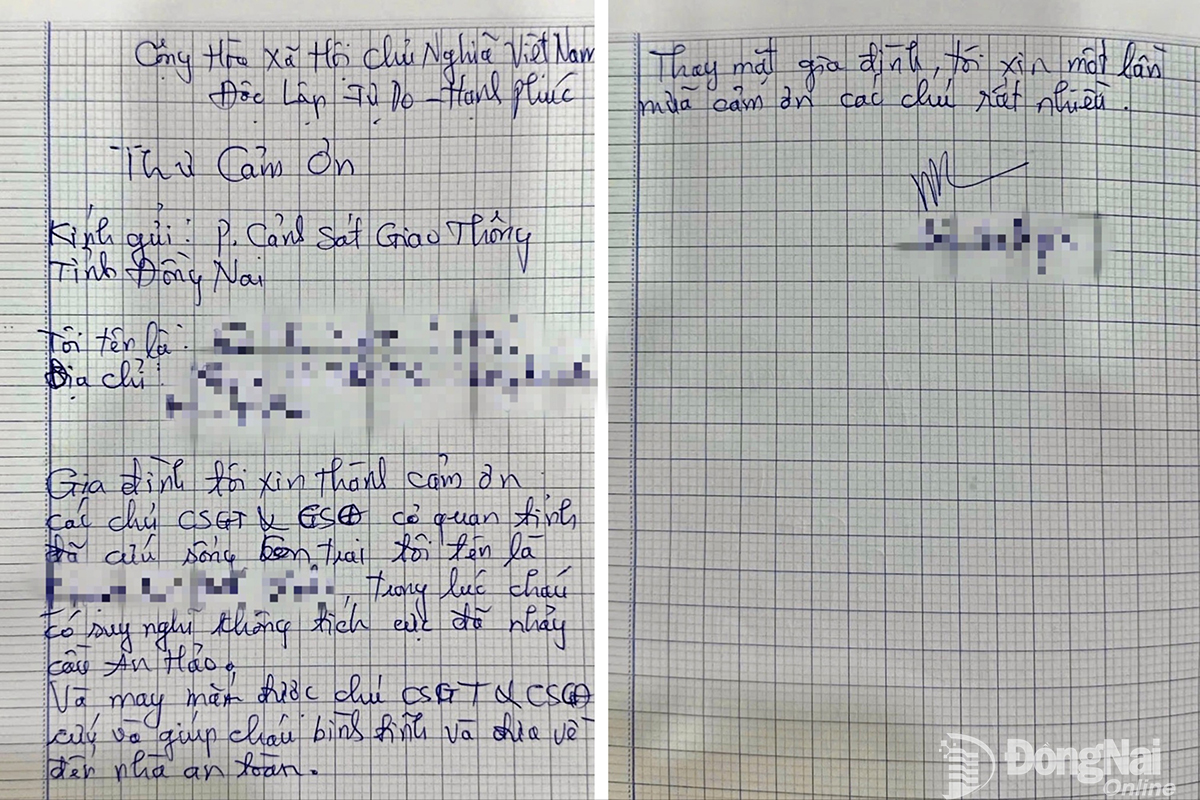 Cộng Hòa Xã Hội Chủ Nghĩa Việt Nam
Độc Lập - Tự Do - Hạnh Phúc
Thư Cảm Ơn
Kính gửi: P. Cảnh Sát Giao Thông
Tỉnh Đồng Nai
Tôi tên là:
Địa chỉ:
Gia đình tôi xin thành cảm ơn
các chú CSGT & CSCĐ cơ quan tỉnh
đã cứu sống con trai tôi tên là
, trong lúc cháu
có suy nghĩ không tích cực đã nhảy
cầu An Hảo.
Và may mắn được chú CSGT & CSCĐ
cứu và giúp cháu bình tĩnh và đưa về
đến nhà an toàn.
Thay mặt gia đình, tôi xin một lần
nữa cảm ơn các chú rất nhiều.
ĐồngNai
Online